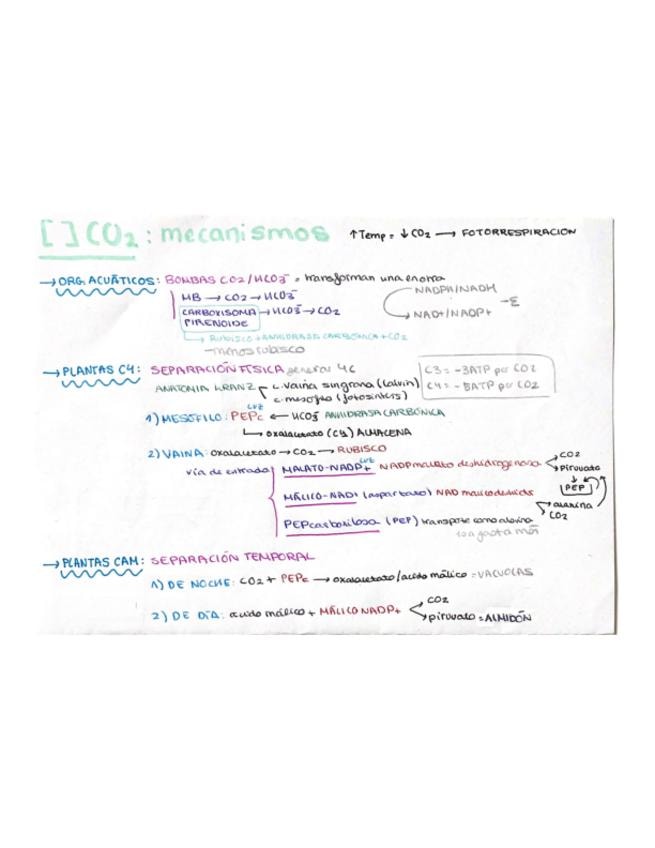 [ ] CO2: mecanismos ↑Temp = ↓CO2 → FOTORRESPIRACION
→ ORG. ACUÁTICOS: BOMBAS CO2/HCO3⁻ = transforman una enorma
MB → CO2 → HCO3⁻
NADPH/NADH
CARBOXISOMA → HCO3⁻ → CO2
PIRENOIDE
-E
NAD+/NADP+
RUBISCO + ANHIDRASA CARBÓNICA + CO2
-menos rubisco
→ PLANTAS C4: SEPARACIÓN FÍSICA generar 4C
C3 = -3ATP por CO2
C4 = -5ATP por CO2
ANATOMIA KRANZ c. vaina singrana (calvin)
c. mesofilo (fotosintesis)
1) MESÓFILO: PEPc ← HCO3⁻ ANHIDRASA CARBÓNICA
LUZ
→ oxalacetato (C4) ALMACENA
2) VAINA: oxalacetato → CO2 → RUBISCO
vía de entrada
LUZ
MALATO-NADP+ NADP malato deshidrogenasa
CO2
piruvato
PEP
MÁLICO-NAD+ (aspartato) NAD malico deshids
alanina
CO2
PEPcarboxilasa (PEP) transporte como alanina
→ PLANTAS CAM: SEPARACIÓN TEMPORAL
1) DE NOCHE: CO2 + PEPc → oxalacetato/acido málico = VACUOLAS
2) DE DÍA: acido málico + MÁLICO NADP+
CO2
piruvato = ALMIDÓN